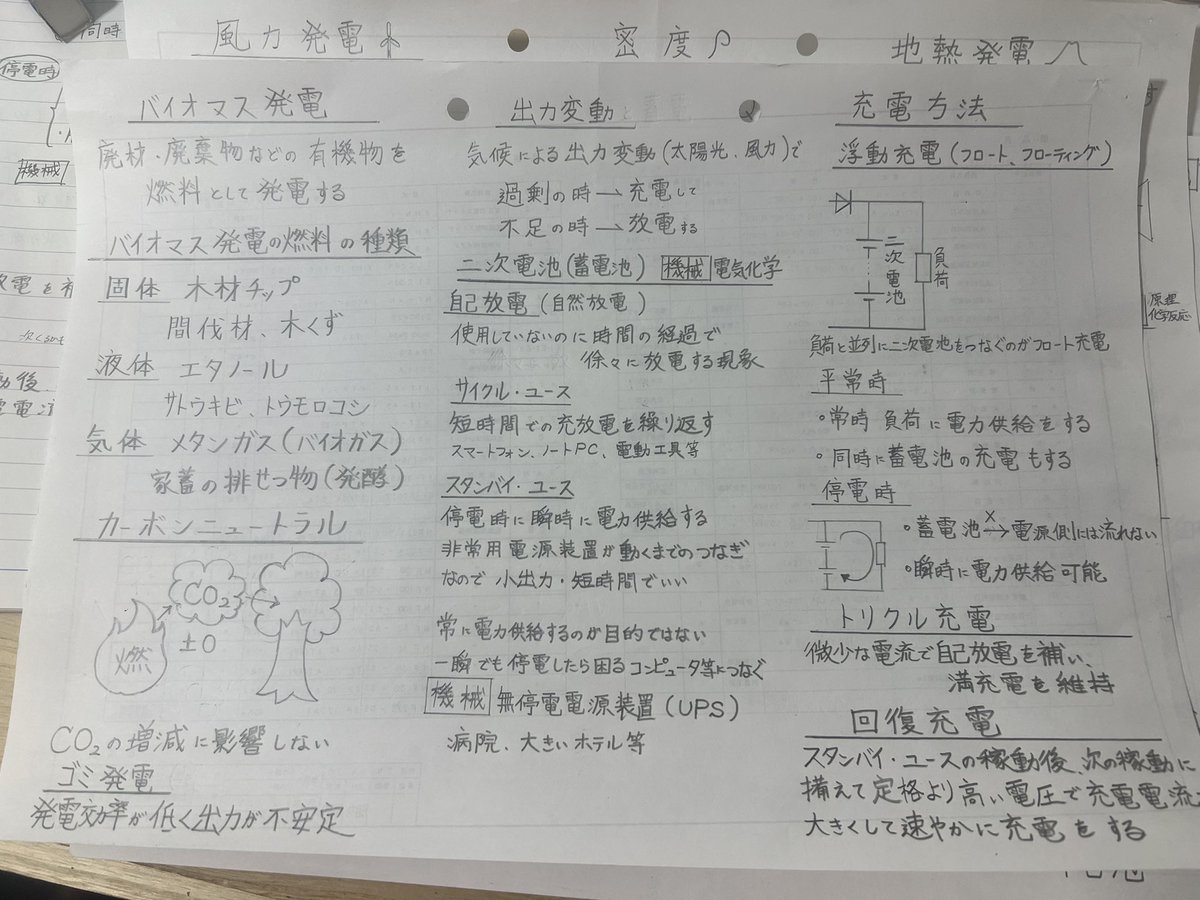 風力発電
密度
地熱発電
同時
停電時
機械
バイオマス発電
廃材、廃棄物などの有機物を
燃料として発電する
バイオマス発電の燃料の種類
固体 木材チップ
間伐材、木くず
液体 エタノール
サトウキビ、トウモロコシ
気体 メタンガス(バイオガス)
家畜の排せつ物(発酵)
カーボンニュートラル
CO₂
±0
燃
CO₂の増減に影響しない
ゴミ発電
発電効率が低く出力が不安定
出力変動
気候による出力変動(太陽光、風力)で
過剰の時→充電して
不足の時→放電する
二次電池(蓄電池) 機械 電気化学
自己放電(自然放電)
使用していないのに時間の経過で
徐々に放電する現象
サイクル・ユース
短時間での充放電を繰り返す
スマートフォン、ノートPC、電動工具等
スタンバイ・ユース
停電時に瞬時に電力供給する
非常用電源装置が動くまでのつなぎ
なので小出力・短時間でいい
常に電力供給するのが目的ではない
一瞬でも停電したら困るコンピュータ等につなぐ
機械 無停電電源装置(UPS)
病院、大きいホテル等
充電方法
浮動充電(フロート、フローティング)
二次電池
負荷
負荷と並列に二次電池をつなぐのがフロート充電
平常時
・常時負荷に電力供給をする
・同時に蓄電池の充電もする
停電時
・蓄電池 X→ 電源側には流れない
・瞬時に電力供給可能
トリクル充電
微少な電流で自己放電を補い、
満充電を維持
回復充電
スタンバイ・ユースの稼動後、次の稼動に
備えて定格より高い電圧で充電電流
大きくして速やかに充電をする
原理
化学反応